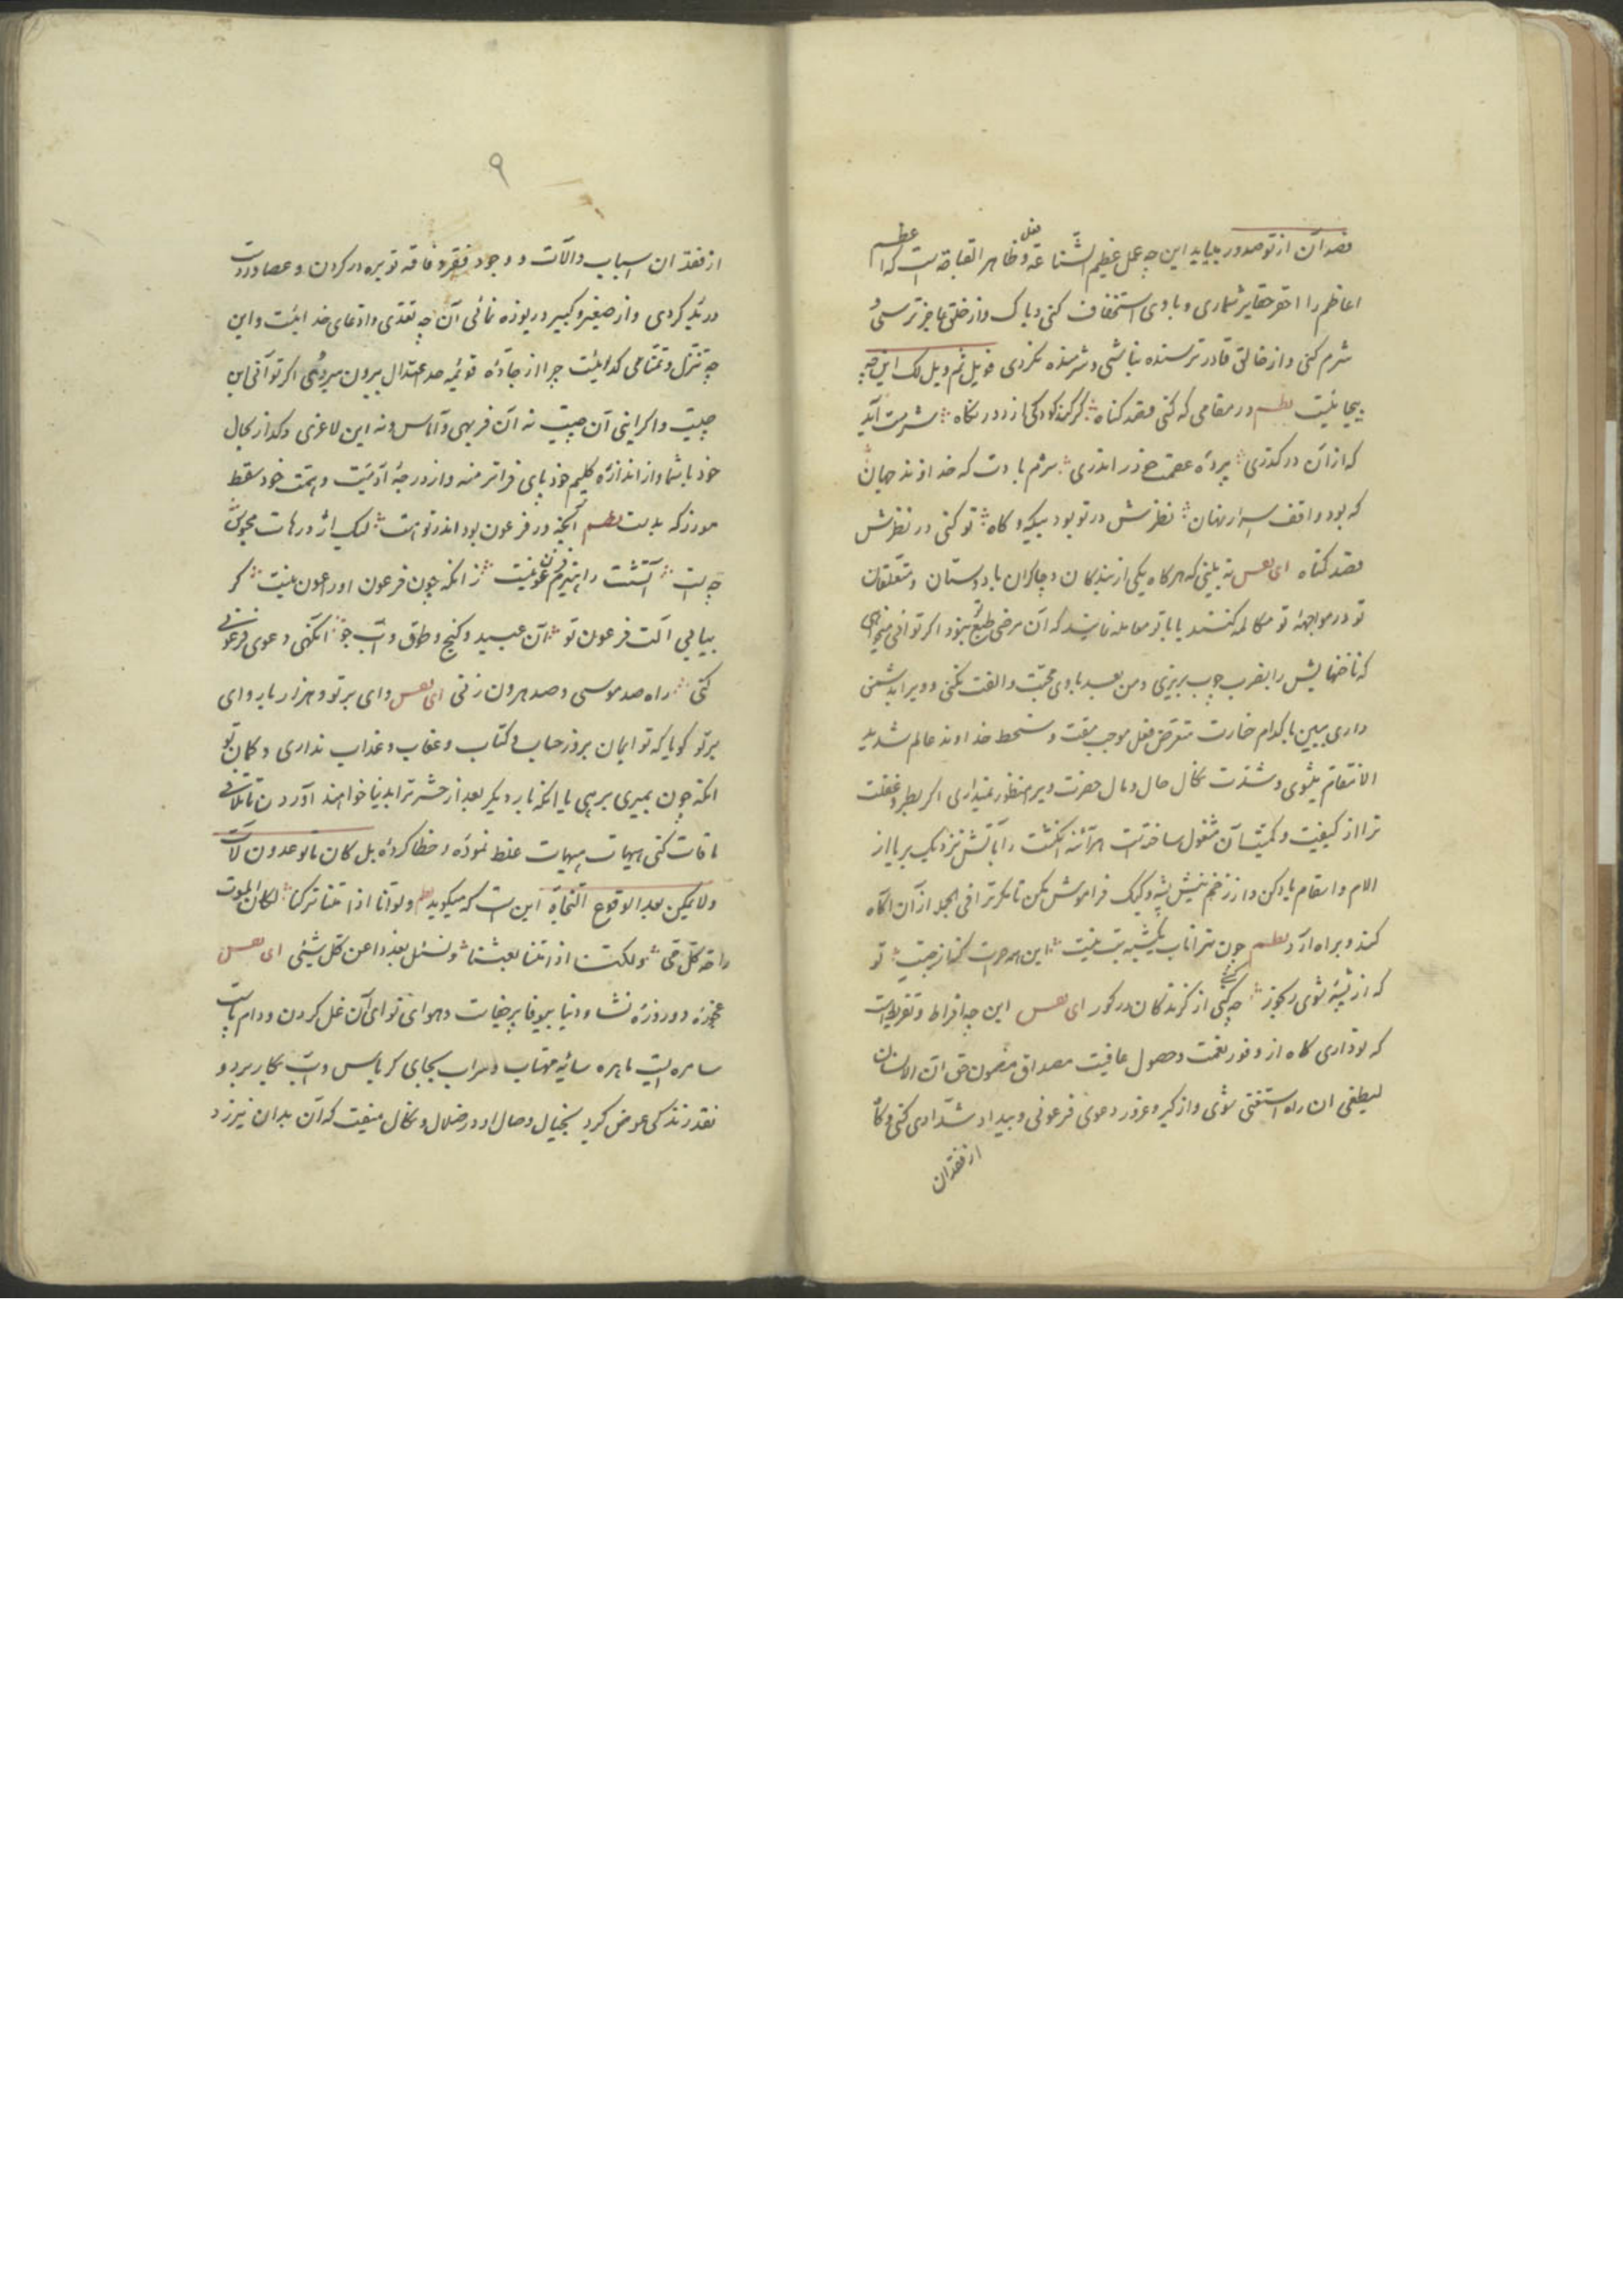 قصد آن از تو صدور بیاید این چه عمل عظیم الشناعة و فعل ظاهر القباحه است که اعظم
اعاظم را احقر حقایر شماری و با وی استخفاف کنی و باک و از خلق عاجز ترسی و
شرم کنی و از خالق قادر ترسنده نباشی و شرمنده نکردی فویل ثم ویل لک این چه
بیحیائیست نظم در مقامی که کنی قصد کناه کر کند کودکی از دور نکاه شرمت آید
که از آن درکذری پرده عصمت خود را ندری شرم بادت که خداوند جهان
که بود واقف اسرار نهان نظرش در تو بود بیکه و کاه تو کنی در نظرش
قصد کناه ای نفس نه بینی که هر کاه یکی از بندکان و چاکران یا دوستان و متعلقان
تو در مواجههٔ تو مکالمه کنند یا با تو معامله نمایند که آن مرضی طبع تو نبود اکر توانی میخواهی
که ناخنهایش را بضرب چوب بریزی و من بعد با وی محبت و الفت نکنی و ویرا بدشمنی
داری ببین با کدام جسارت متعرض فعل موجب مقت و سخط خداوند عالم شدید
الانتقام میشوی و شدت نکال حال و مال حضرت ویرا منظور نمیداری اکر بطر و غفلت
ترا از کیفیت و کمیت آن مشغول ساخته است هر آئنه انکشت را بآتش نزدیک بر یا از
الام و اسقام یاد کن و از زخم نیش پشه و کیک فراموش مکن تا مکر ترا فی الجمله از آن آکاه
کند و براه آرد نظم چون ترا تاب یکشبه تب نیست این همه جرات کنه از چیست تو
که از پشهٔ شوی رنجور چه کنی از کزندکان در کور ای نفس این چه افراط و تفریط است
که تو داری کاه از وفور نعمت و حصول عافیت مصداق مضمون حق ان الانسان
لیطغی ان راه استغنی شوی و از کبر و غرور دعوی فرعونی و بیداد شدادی کنی و کاه
از فقدان
۹
از فقدان اسباب و آلات و وجود فقر و فاقه توبره در کردن و عصا در دست
دریدکردی و از صغیر و کبیر دریوزه نمائی آن چه تعدی و ادعای خدائیست و این
چه تنزل و تمنامی کدائیست چرا از جادهٔ قویمه حد اعتدال بیرون میروی اکر تو آنی این
چیست و اکر اینی آن چیست نه آن فربهی و آماس و نه این لاغری و کداز بحال
خود باش و از اندازه کلیم خود پای فراتر منه و از درجهٔ آدمیت و همت خود سقط
مورز که بد است نظم آنچه در فرعون بود اندر تو هست لیک اژدرهات محبوس
چه است آتشت را هیزم فرعون نیست زانکه چون فرعون او را عون نیست کر
بیابی آلت فرعون تو آن عبید و کنج و طوق و آب جو آنکهی دعوی فرعونی
کنی راه صد موسی و صد هرون زنی ای نفس وای بر تو و هزار بار وای
بر تو کویا که تو ایمان بروز حساب و کتاب و عقاب و عذاب نداری و کمان تو
آنکه چون بمیری برهی یا آنکه بار دیکر بعد از حشر ترا بدنیا خواهند آوردن تا تلافی
مافات کنی هیهات هیهات غلط نمودهٔ و خطا کردهٔ بل کان ما توعدون لآت
ولا یمکن بعد الوقوع النجاة این است که میکوید نظم ولو انا اذا متنا ترکنا لکان الموت
راحة کل حی ولکنا اذا متنا بعثنا ونسئل بعد ذا عن کل شیئ ای نفس
عجوزهٔ دو روزهٔ نشاء دنیا بیوفا پر جفاست و هوای تو ای آن غل کردن و دام پاست
ساحره ایست ماهره سایهٔ مهتاب و سراب بجای کرباس و آب بکار برد و
نقد زندکی عوض کرد بخیال وصال او در ضلال و نکال میفت که آن بدان نیرزد